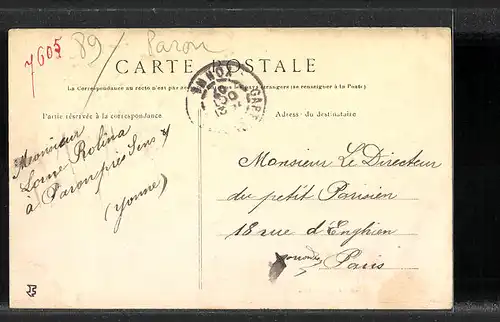 7605
89/ Paron
CARTE POSTALE
La Correspondance au recto n'est pas
étrangers (se renseigner à la Poste)
Partie réservée à la correspondance
Adresse du destinataire
YONNE
Monsieur
Rolina
à Paron près Sens
(Yonne)
Monsieur Le Directeur
du petit Parisien
18 rue d'Enghien
Paris